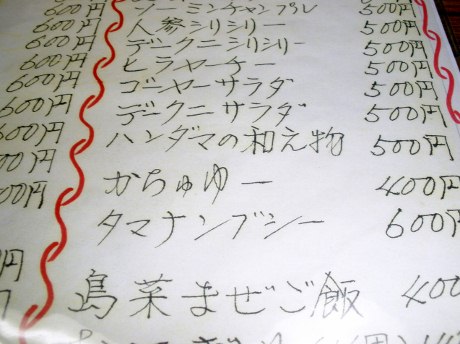 600円 ソーミンチャンプル 500円
600円 人参シリシリー 500円
600円 デークニシリシリー 500円
600円 ヒラヤーチー 500円
600円 ゴーヤーサラダ 500円
600円 デークニサラダ 500円
600円 ハンダマの和え物 500円
00円 かちゅゆー 400円
00円 タマナンブシー 600円
円 島菜まぜご飯 400